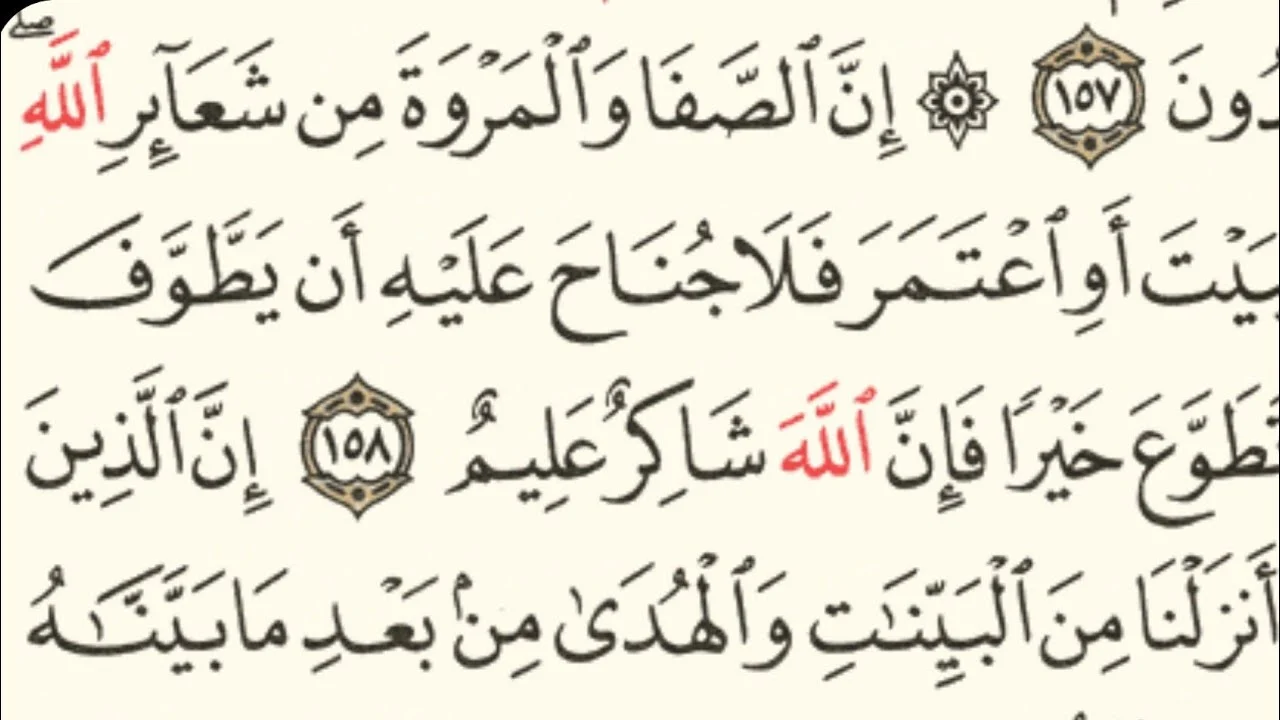 دُونَ ١٥٧ ۞ إِنَّ ٱلصَّفَا وَٱلْمَرْوَةَ مِن شَعَآئِرِ ٱللَّهِ ۖ
بَيْتَ أَوِ ٱعْتَمَرَ فَلَا جُنَاحَ عَلَيْهِ أَن يَطَّوَّفَ
تَطَوَّعَ خَيْرًا فَإِنَّ ٱللَّهَ شَاكِرٌ عَلِيمٌ ١٥٨ إِنَّ ٱلَّذِينَ
أَنزَلْنَا مِنَ ٱلْبَيِّنَـٰتِ وَٱلْهُدَىٰ مِنۢ بَعْدِ مَا بَيَّنَّـٰهُ